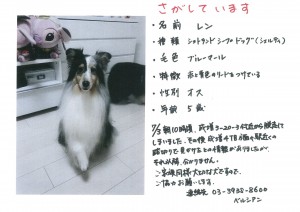 さがしています
・名前 レン
・種類 シェトランドシープドッグ(シェルティ)
・毛色 ブルーマール
・特徴 赤と黄色のリードをつけている
・性別 オス
・年齢 5歳
7/3 朝10時頃、成増3-20-3付近から脱走して
しまいました。その後成増4丁目の駅近くの
踏切りで見かけたとの情報がありましたが、
それ以降、分かりません。
ご家族同様大切な犬ですので、
ご協力お願いします。
連絡先 03-3988-8600
ペルシアン